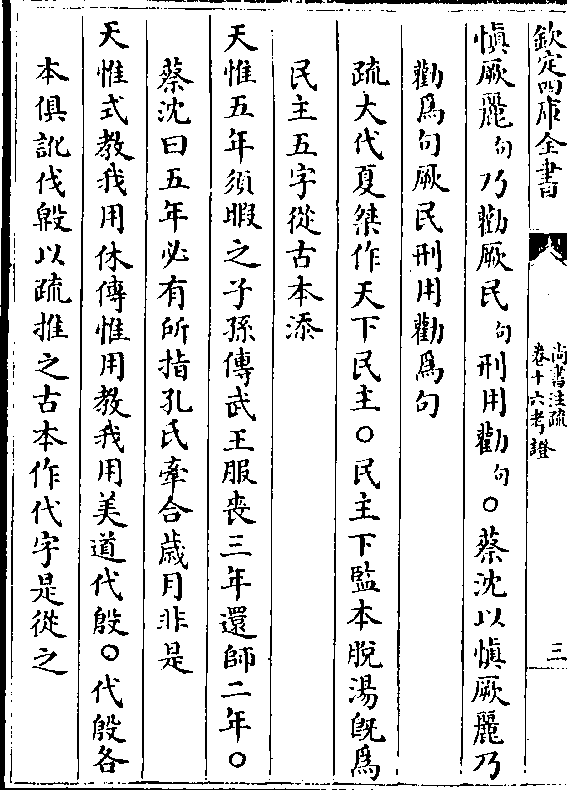 欽定四庫全書
尚書注疏
卷十六考證
三
慎厥麗句乃勸厥民句刑用勸句○蔡沈以慎厥麗乃
勸爲句厥民刑用勸爲句
疏大代夏桀作天下民主○民主下監本脫湯旣爲
民主五字從古本添
天惟五年須暇之子孫傳武王服喪三年還師二年○
蔡沈曰五年必有所指孔氏牽合歲月非是
天惟式教我用休傳惟用教我用美道代殷○代殷各
本俱訛伐殷以疏推之古本作代字是從之